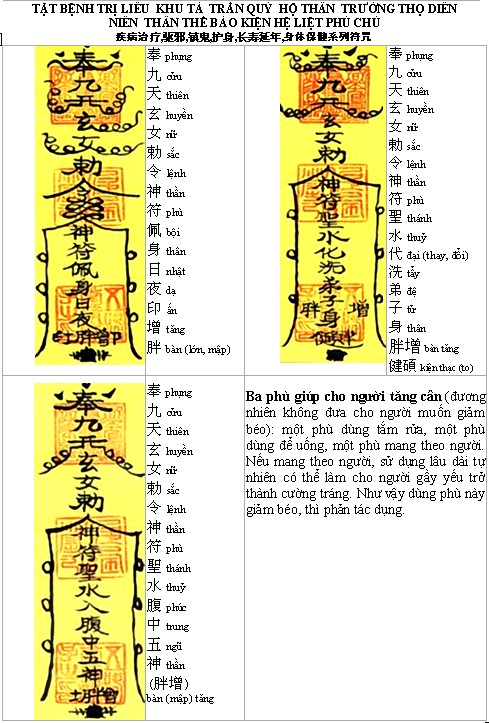 TẬT BỆNH TRỊ LIỆU KHU TÀ TRẤN QUỶ HỘ THÂN TRƯỜNG THỌ DIÊN
NIÊN THÂN THỂ BẢO KIỆN HỆ LIỆT PHÙ CHÚ
疾病治疗,驱邪,镇鬼,护身,长寿延年,身体保健系列符咒
奉九天玄女勅令神符佩身日夜印增胖
奉 phụng
九 cửu
天 thiên
玄 huyền
女 nữ
勅 sắc
令 lệnh
神 thần
符 phù
佩 bội
身 thân
日 nhật
夜 dạ
印 ấn
增 tăng
胖 bàn (lớn, mập)
奉九天玄女勅令神符聖水化洗弟子身
胖 增
奉 phụng
九 cửu
天 thiên
玄 huyền
女 nữ
勅 sắc
令 lệnh
神 thần
符 phù
聖 thánh
水 thuỷ
代 đại (thay, đổi)
洗 tẩy
弟 đệ
子 tử
身 thân
胖增 bàn tăng
健碩 kiện thạc (to)
奉九天玄女勅令神符聖水入腹中五神
奉 phụng
九 cửu
天 thiên
玄 huyền
女 nữ
勅 sắc
令 lệnh
神 thần
符 phù
聖 thánh
水 thuỷ
腹 phúc
中 trung
五 ngũ
神 thần
(胖增)
bàn (mập) tăng
Ba phù giúp cho người tăng cân (đương
nhiên không đưa cho người muốn giảm
béo): một phù dùng tắm rửa, một phù
dùng để uống, một phù mang theo người.
Nếu mang theo người, sử dụng lâu dài tự
nhiên có thể làm cho người gầy yếu trở
thành cường tráng. Như vậy dùng phù này
giảm béo, thì phản tác dụng.